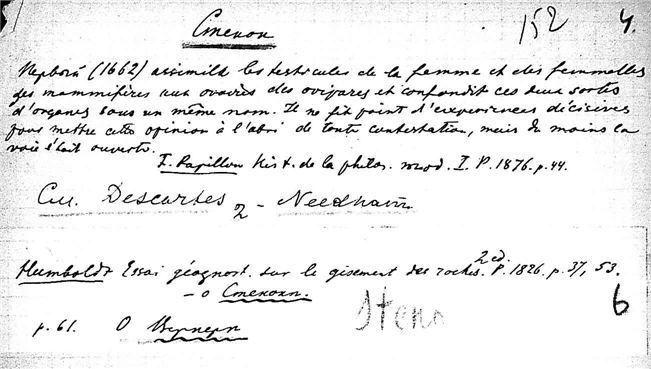 Стенон 152 4.
(1662) assimila les testicules de la femme et des femmelles
des mammifères aux ovaires des ovipares et confondit ces deux sortes
d'organes sous un même nom. Il ne fit point d'experiences décisives
pour mettre cette opinion à l'abri de toute contestation, mais du moins la
voie était ouverte.
F. Papillon Hist. de la philos. mod. I. P. 1876. p. 44.
См. Descartes 2 - Needham
Humboldt Essai géognost. sur le gisement des roches. 2 ed. P. 1826. p. 37, 53.
- о Стенони. 6
Steno
p. 61. О Вернери